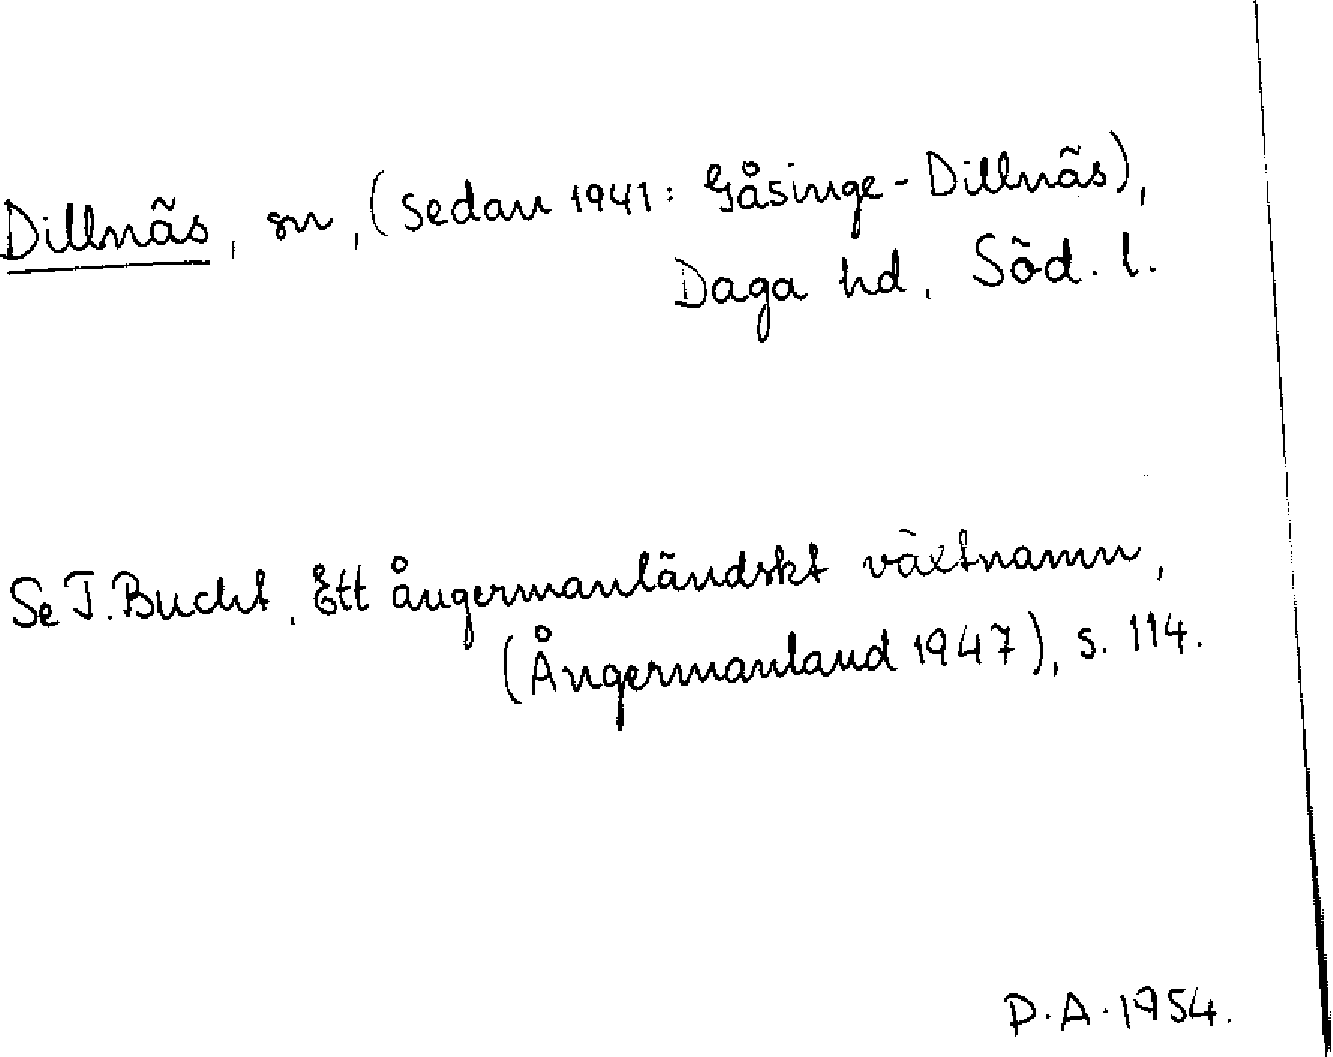 Dillnäs, sn, (sedan 1941: Gåsinge-Dillnäs),
Daga hd, Söd. l.
Se T. Bucht, Ett ångermanländskt växtnamn,
(Ångermanland 1947), s. 114.
D.A. 1954.